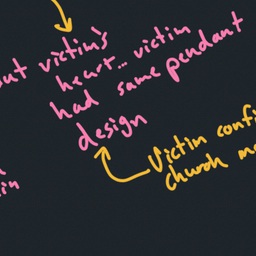 out victim's
heart... victim
had same pendant
design
Victim confi
church m
in